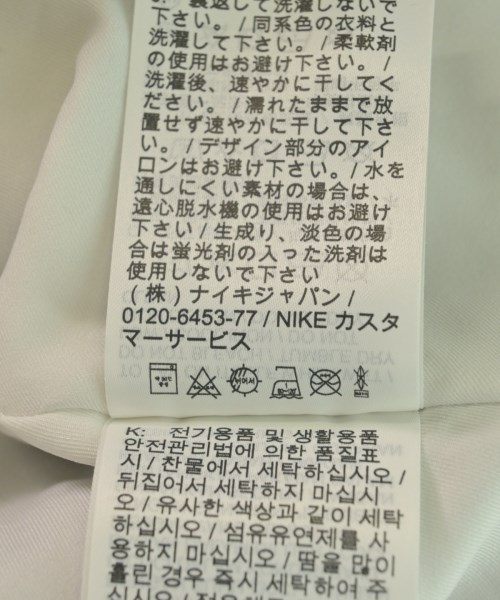 裏返して洗濯しないで
下さい。/ 同系色の衣料と
洗濯して下さい。/ 柔軟剤
の使用はお避け下さい。/
洗濯後、速やかに干してく
ださい。/ 濡れたままで放
置せず速やかに干して下さ
い。/ デザイン部分のアイ
ロンはお避け下さい。/ 水を
通しにくい素材の場合は、
遠心脱水機の使用はお避け
下さい / 生成り、淡色の場
合は蛍光剤の入った洗剤は
使用しないで下さい
(株) ナイキジャパン /
0120-6453-77 / NIKE カスタ
マーサービス
K: 전기용품 및 생활용품
안전관리법에 의한 품질표
시 / 찬물에서 세탁하십시오 /
뒤집어서 세탁하지 마십시
오 / 유사한 색상과 같이 세탁
하십시오 / 섬유유연제를 사
용하지 마십시오 / 땀을 많이
흘린 경우 즉시 세탁하여 주
십시오 /